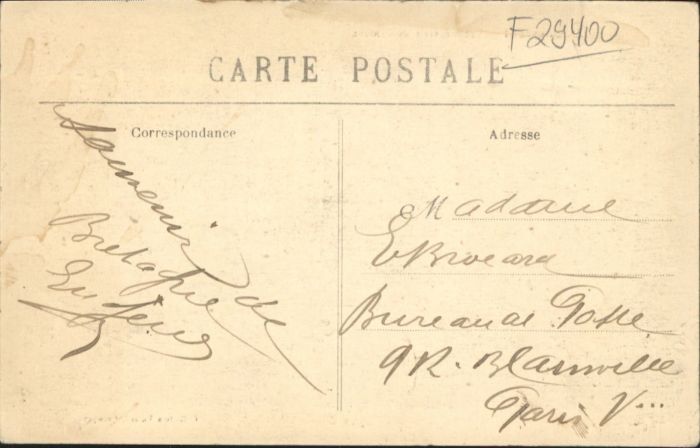 F29400
CARTE POSTALE
Correspondance
Souvenir de
Bretagne
Eugène
Adresse
Madame
E Brocard
Bureau de Poste
9 R. Blainville
Paris V